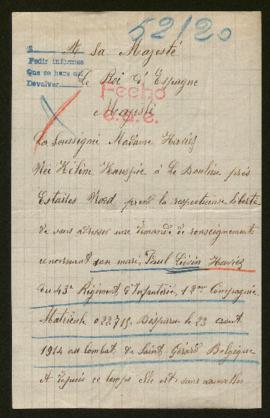 52/20
A Sa Majesté
Pedir informes
Que se hara en
Devolver
Le Roi d'Espagne
Fecho
Majesté
La Soussigné Madame Haviez
Née Hélène à Le Doulieu près
Estaires Nord prend la respectueuse liberté
de vous adresser une demande de renseignement
concernant son mari, Paul Haviez
du 43e Régiment d'Infanterie, 12me Compagnie
Matricule 022715. Disparu le 23 aout
1914 au Combat de Saint Gérard Belgique
et depuis ce temps Elle est sans nouvelles